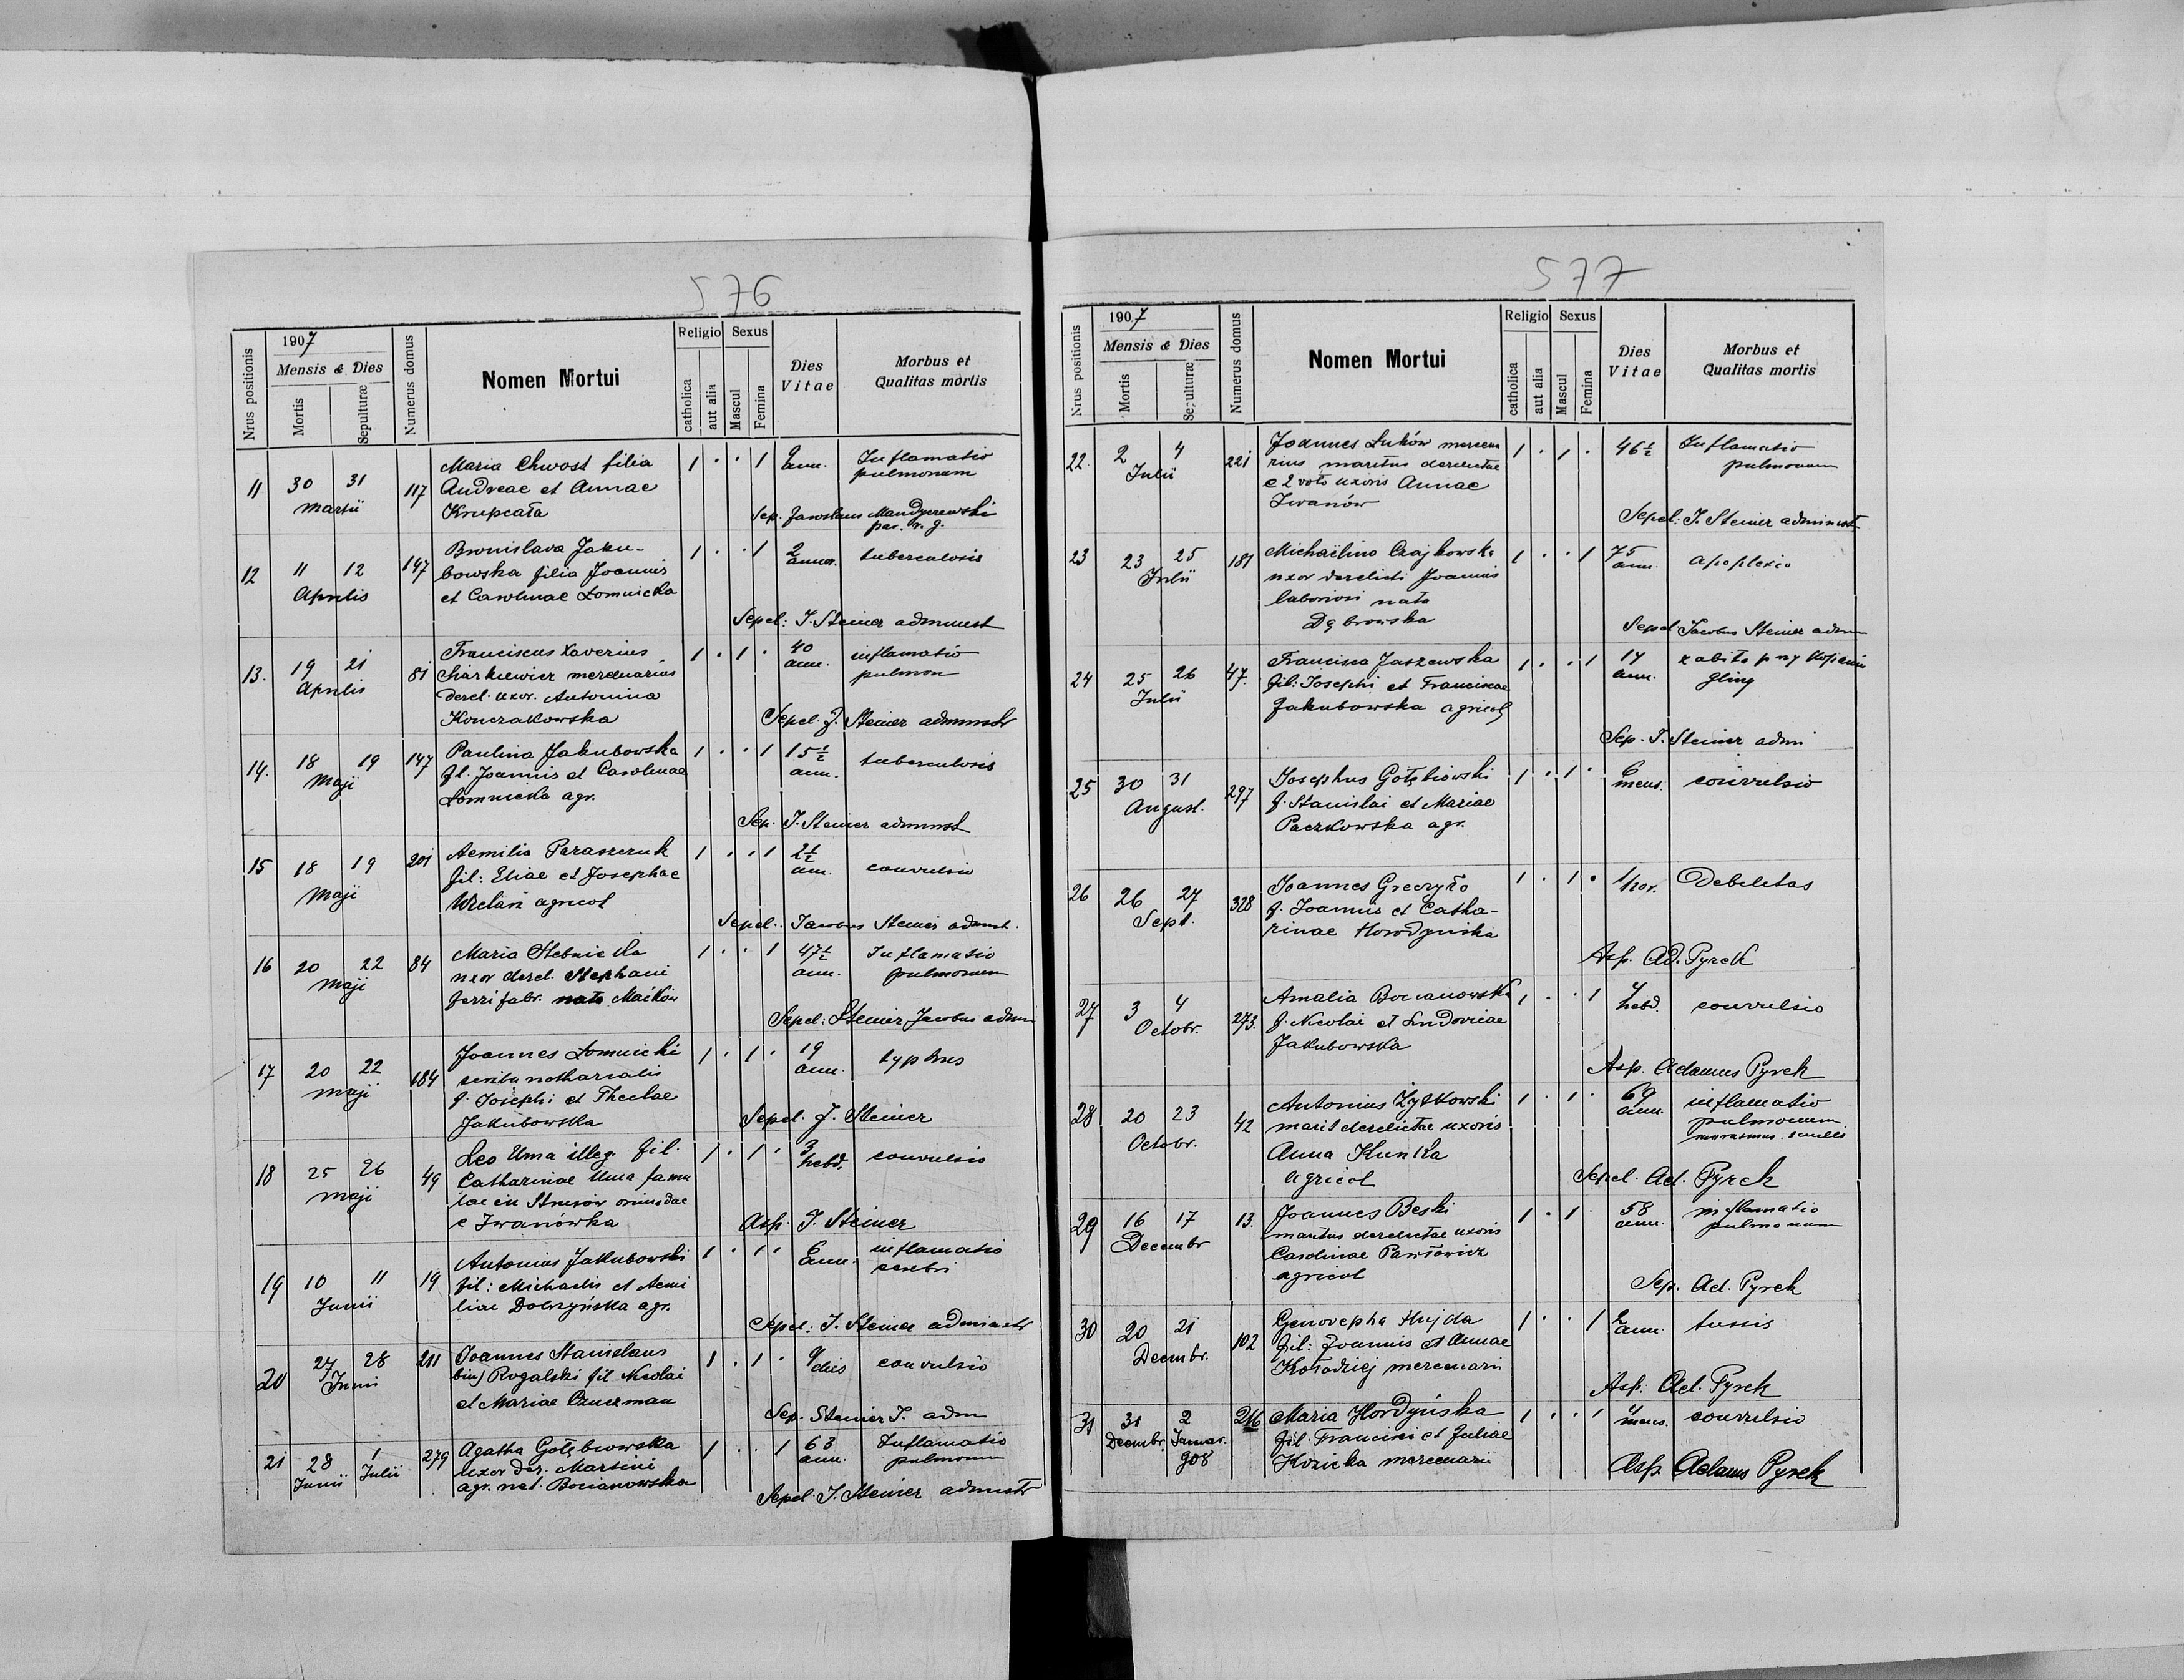 576
1907
Nrus positionis
Mensis & Dies
Mortis
Sepulturæ
Numerus domus
Nomen Mortui
Religio
catholica
aut alia
Sexus
Mascul
Femina
Dies Vitae
Morbus et Qualitas mortis
11 30 31 117 Maria Chwost filia 1 . . 1 2 Inflamatio
Martii Andreae et Annae ann. pulmonum
Krupcała
Sep. Jaroslaus Mandyczewski
par. r. g.
12 11 12 147 Bronislava Jaku- 1 . . 1 2 tuberculosis
Aprilis bowska filia Joannis
et Carolinae Łomnicka
Sepel: J. Steiner administ
13. 19 21 81 Franciscus Xaverius 1 . 1 . 40 inflamatio
Aprilis mercenarius ann. pulmon
derel. uxor. Antonina
Konczakowska
Sepel J. Steiner administr
14. 18 19 147 Paulina Jakubowska 1 . . 1 15½ tuberculosis
Maji fil. Joannis et Carolinae ann.
Łomnicka agr.
Sep. J. Steiner administ
15 18 19 201 Aemilia Paraszczuk 1 . . 1 2½ convulsio
Maji fil: Eliae et Josephae ann.
agricol
Sepel. Jacobus Steiner admst.
16 20 22 84 Maria Stebnicka 1 . . 1 47½ Inflamatio
Maji uxor derel. Stephani ann. pulmonum
ferrifabr. nata Maików
Sepel: Steiner Jacobus adm
17 20 22 184 Joannes Łomnicki 1 . 1 . 19 typhus
Maji scriba notharialis ann.
f. Josephi et Theclae
Jakubowska
Sepel. J. Steiner
18 25 26 49 Leo Uma illeg. fil. 1 . 1 . 3 convulsio
Maji Catharinae Uma famu hebd.
lae in Strusów oriundae
e Iwanówka
Asp. J. Steiner
19 10 11 19 Antonius Jakubowski 1 . 1 . 6 inflamatio
Junii fil: Michaelis et Aemi ann. cerebri
liae Dobrzyńska agr.
Sepel: J. Steiner administr
20 27 28 211 Joannes Stanislaus 1 . 1 . 9 convulsio
Junii bin) Rogalski fil Nicolai dies
et Mariae Czuczman
Sep. Steiner J. adm
21 28 1 279 Agatha Gołębiowska 1 . . 1 63 Inflamatio
Junii Julii uxor der. Martini ann. pulmonum
agr. nat. Bocianowska
Sepel. J. Steiner administr
577
1907
Nrus positionis
Mensis & Dies
Mortis
Sepulturæ
Numerus domus
Nomen Mortui
Religio
catholica
aut alia
Sexus
Mascul
Femina
Dies Vitae
Morbus et Qualitas mortis
22. 2 4 221 Joannes Łuków mercena 1 . 1 . 46½ Inflamatio
Julii rius maritus derelictae pulmonum
e 2 voto uxoris Annae
Iwanów
Sepel: J. Steiner administ
23 23 25 181 Michaëlina Czajkowska 1 . . 1 75 apoplexio
Julii uxor derelicti Joannis ann.
laboriosi nata
Dąbrowska
Sepel Jacobus Steiner adm
24 25 26 47. Francisca Jaszewska 1 . . 1 14 zabita przy kopaniu
Julii fil: Josephi et Franciscae ann. gliny
Jakubowska agricol
Sep. J. Steiner adm
25 30 31 297 Josephus Gołębiowski 1 . 1 . 6 convulsio
August. f. Stanislai et Mariae mens.
Paczkowska agr.
26 26 27 328 Joannes Greczyło 1 . 1 . 1 hor. Debelitas
Sept. f. Joannis et Catha-
rinae Horodyńska
Asp. Ad. Pyrek
27 3 4 273. Amalia Bocianowska 1 . . 1 4 convulsio
Octobr. f. Nicolai et Ludovicae hebd.
Jakubowska
Asp. Adamus Pyrek
28 20 23 42 Antonius Żytkowski 1 . 1 . 69 inflamatio
Octobr. marit derelictae uxoris ann. pulmonum
Anna Kuńka marasmus senilis
agricol
Sepel. Ad. Pyrek
29 16 17 13. Joannes Beski 1 . 1 58 inflamatio
Decembr maritus derelictae uxoris ann. pulmonum
Carolinae Pawłowicz
agricol
Sep. Ad. Pyrek
30 20 21 102 Genovepha Hujda 1 . . 1 2 tussis
Decembr. fil: Joannis et Annae ann.
Kołodziej mercenarii
Asp. Ad. Pyrek
31 31 2 216 Maria Hordyńska 1 . . 1 4 convulsio
Decembr. Januar. fil. Francisci et Juliae mens.
908 Kozicka mercenarii
Asp. Adamus Pyrek